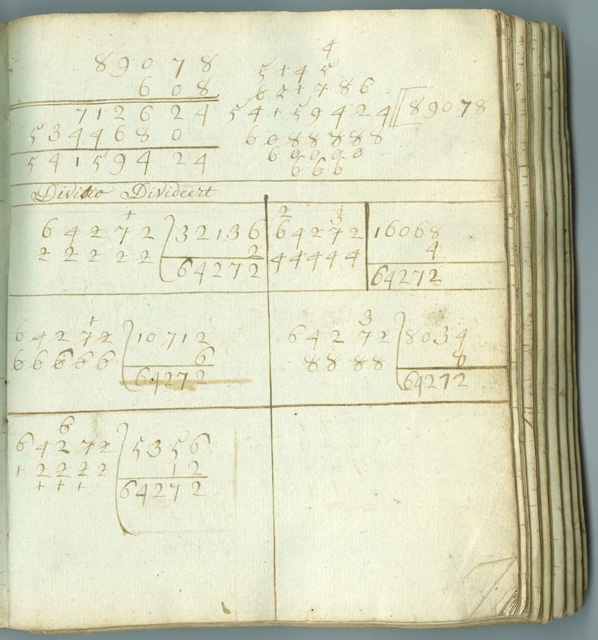 89078
608
712624
534468 0
541594 24
4
5+45
62+786
54+59424 89078
6088888
60000
666
Divitio Divideert
+
64272 32136
22222 2
64272
2 3
64272 16068
44444 4
64272
+
64272 10712
66666 6
64272
3
64272 8034
8888 8
64272
6
64272 5356
+2222 12
+++ 64272